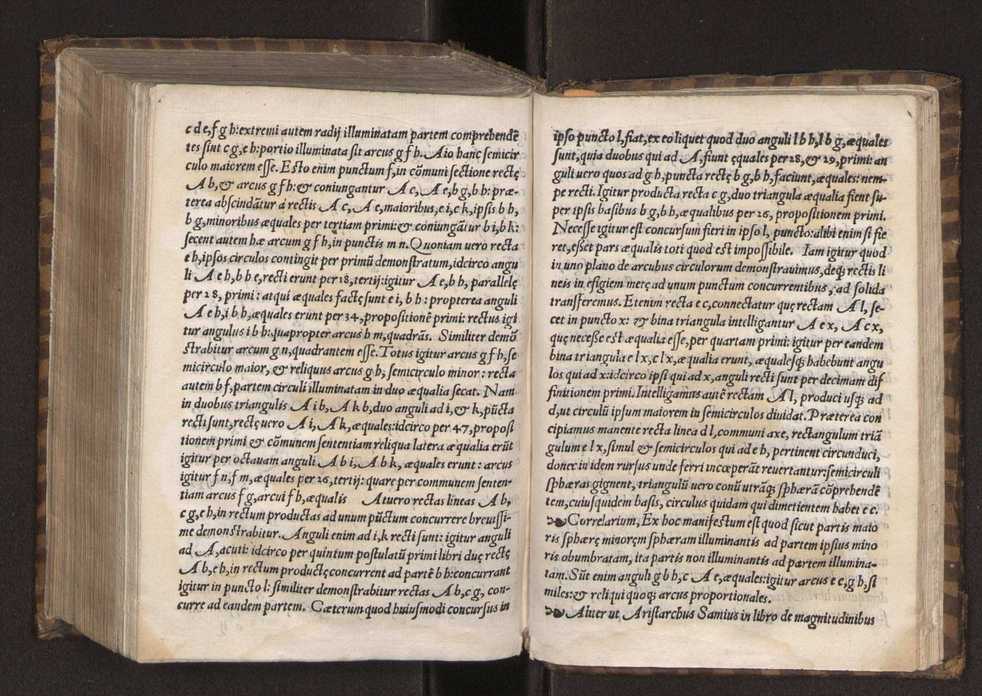 c d e, f g h: extremi autem radij illuminatam partem comprehendẽ
tes sint c g, e h: portio illuminata sit arcus g f h. Aio hanc semicir
culo maiorem esse. Esto enim punctum f, in cõmuni sectione rectę
A b, & arcus g f h: & coniungantur A c, A e, b g, b h: præ-
terea abscindãtur à rectis A c, A e, maioribus, e i, c k, ipsis b h,
b g, minoribus æquales per tertiam primi: & coniungãtur b i, b k:
secent autem hæ arcum g f h, in punctis m n. Quoniam uero recta
e h, ipsos circulos contingit per primũ demonstratum, idcirco angu
li A e h, b h e, recti erunt per 18, tertij: igitur A e, b h, parallelę
per 28, primi: atqui æquales factę sunt e i, b h: propterea anguli
A e h, i b h, æquales erunt per 34, propositionẽ primi: rectus igi
tur angulus i b h: quapropter arcus h m, quadrãs. Similiter demõ
strabitur arcum g n, quadrantem esse. Totus igitur arcus g f h, se
micirculo maior, & reliquus arcus g h, semicirculo minor: recta
autem b f, partem circuli illuminatam in duo æqualia secat. Nam
in duobus triangulis A i b, A k b, duo anguli ad i, & k, pũcta
recti sunt, rectę uero A i, A k, æquales: idcirco per 47, proposi
tionem primi & cõmunem sententiam reliqua latera æqualia erũt
igitur per octauam anguli A b i, A b k, æquales erunt: arcus
igitur f n, f m, æquales per 26, tertij: quare per communem senten-
tiam arcus f g, arcui f h, æqualis A tuero rectas lineas A b,
c g, e h, in rectum productas ad unum pũctum concurrere breuissi-
me demonstrabitur. Anguli enim ad i, k recti sunt: igitur anguli
ad A, acuti: idcirco per quintum postulatũ primi libri duę rectę
A b, e h, in rectum productę concurrent ad partẽ b h: concurrant
igitur in puncto l: similiter demonstrabitur rectas A b, c g, con-
curre ad eandem partem. Cæterum quod huiusmodi concursus in
ipso puncto l, fiat, ex eo liquet quod duo anguli l b h, l b g, æquales
sunt, quia duobus qui ad A, fiunt ęquales per 28, & 29, primi: an
guli uero quos ad g h, puncta rectę b g, b h, faciunt, æquales: nem-
pe recti. Igitur producta recta c g, duo triangula æqualia fient su-
per ipsis basibus b g, b h, æqualibus per 26, propositionem primi.
Necesse igitur est concursum fieri in ipso l, puncto: alibi enim si fie
ret, esset pars æqualis toti quod est impossibile. Iam igitur quod
in uno plano de arcubus circulorum demonstrauimus, deq́; rectis li
neis in efigiem metę ad unum punctum concurrentibus, ad solida
transfferemus. Etenim recta e c, connectatur quę rectam A l, se-
cet in puncto x: & bina triangula intelligantur A e x, A c x,
quę necesse est æqualia esse, per quartam primi: igitur per eandem
bina triangula e l x, c l x, æqualia erunt, æqualesq́; habebunt angu
los qui ad x: idcirco ipsi qui ad x, anguli recti sunt per decimam dif
finitionem primi. Intelligamus autẽ rectam A l, produci usq́; ad
d, ut circulũ ipsum maiorem in semicirculos diuidat. Præterea con
cipiamus manente recta linea d l, communi axe, rectangulum triã
gulum e l x, simul & semicirculos qui ad e h, pertinent circunduci,
donec in idem rursus unde ferri incœperãt reuertantur: semicirculi
sphæras gignent, triangulũ uero conũ utrãq́; sphærã cõprehendẽ
tem, cuiusquidem basis, circulus quidam qui dimetientem habet e c.
Correlarium, Ex hoc manifestum est quod sicut partis maio
ris sphærę minorẽm sphæram illuminantis ad partem ipsius mino
ris obumbratam, ita partis non illuminantis ad partem illumina-
tam. Sũt enim anguli g b h, c A e, æquales: igitur arcus e c, g h, si
miles: & reliqui quoq́; arcus proportionales.
Aliter ut Aristarchus Samius in libro de magnitudinibus